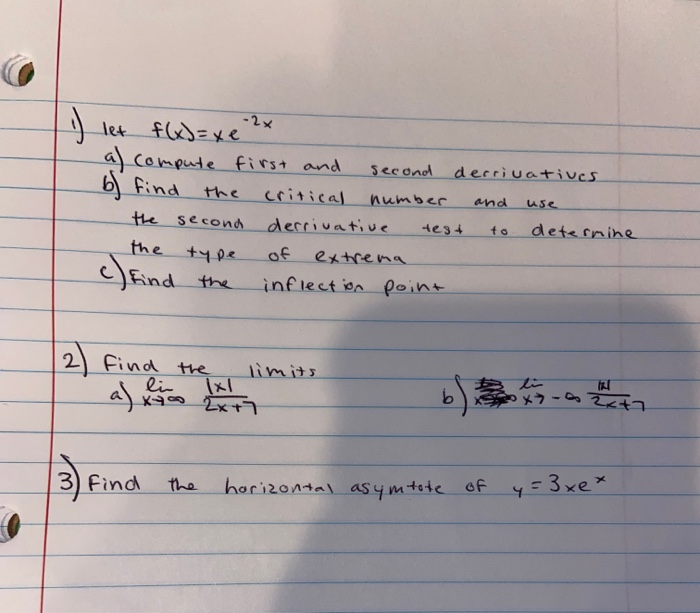 1) let f(x)=xe^-2x
a) compute first and second derrivatives
b) find the critical number and use
the second derrivative test to determine
the type of extrema
c) Find the inflection point
2) Find the limits
a) lim x→∞ |x|/2x+7 b) lim x→-∞ |x|/2x+7
3) Find the horizontal asymtote of y=3xe^x